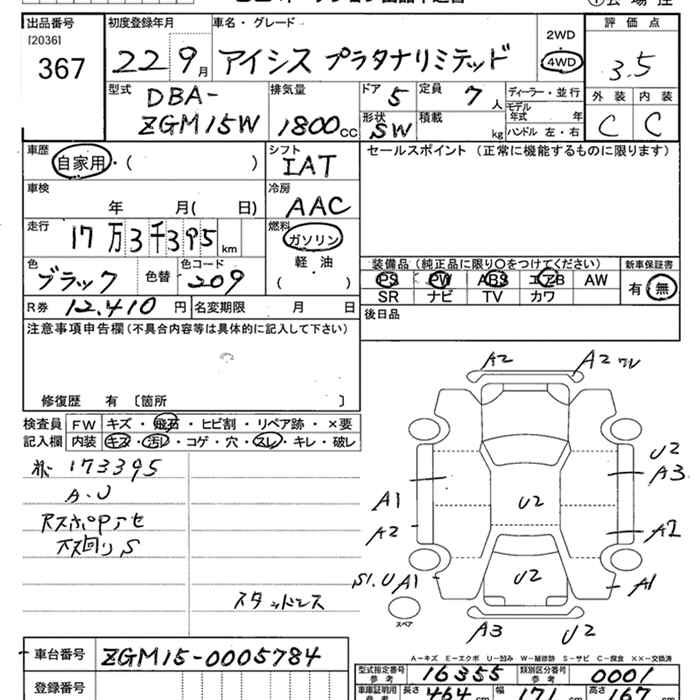 出品番号 初度登録年月 車名・グレード 評価点
[2036]
367 22 9月 アイシス プラタナリミテッド 2WD 4WD 3.5
型式 DBA-ZGM15W 排気量 1800cc ドア 5 定員 7人 ディーラー・並行 外装 内装
形状 SW 積載 kg モデル年式 年 ハンドル 左・右 C C
車歴 自家用・( ) シフト IAT セールスポイント (正常に機能するものに限ります)
車検 年 月( 日) 冷房 AAC
走行 17万3千395km 燃料 ガソリン 軽・油 ( )
色 ブラック 色替 色コード 209 装備品 (純正品に限り○をつけてください) 新車保証書
PS PW ABS エアB AW 有 無
SR ナビ TV カワ
R券 12,410円 名変期限 月 日 後日品
注意事項申告欄 (不具合内容等は具体的に記入して下さい)
修復歴 有 〔箇所 〕
検査員 FW キズ・飛石・ヒビ割・リペア跡・×要
記入欄 内装 キズ・汚レ・コゲ・穴・スレ・キレ・破レ
173395
A.U
スタッドレス
A2 A2 ワレ
U2
A3
A1 U2
A2 A2
S1.U A1 U2 A1
スペア
A3 U2
A-キズ E-エクボ U-凹み W-補修跡 S-サビ C-腐食 ××-交換済
車台番号 ZGM15-0005784 型式指定番号 参考 16355 類別区分番号 参考 0001
登録番号 車庫証明用 長さ 464 幅 171 高さ 167